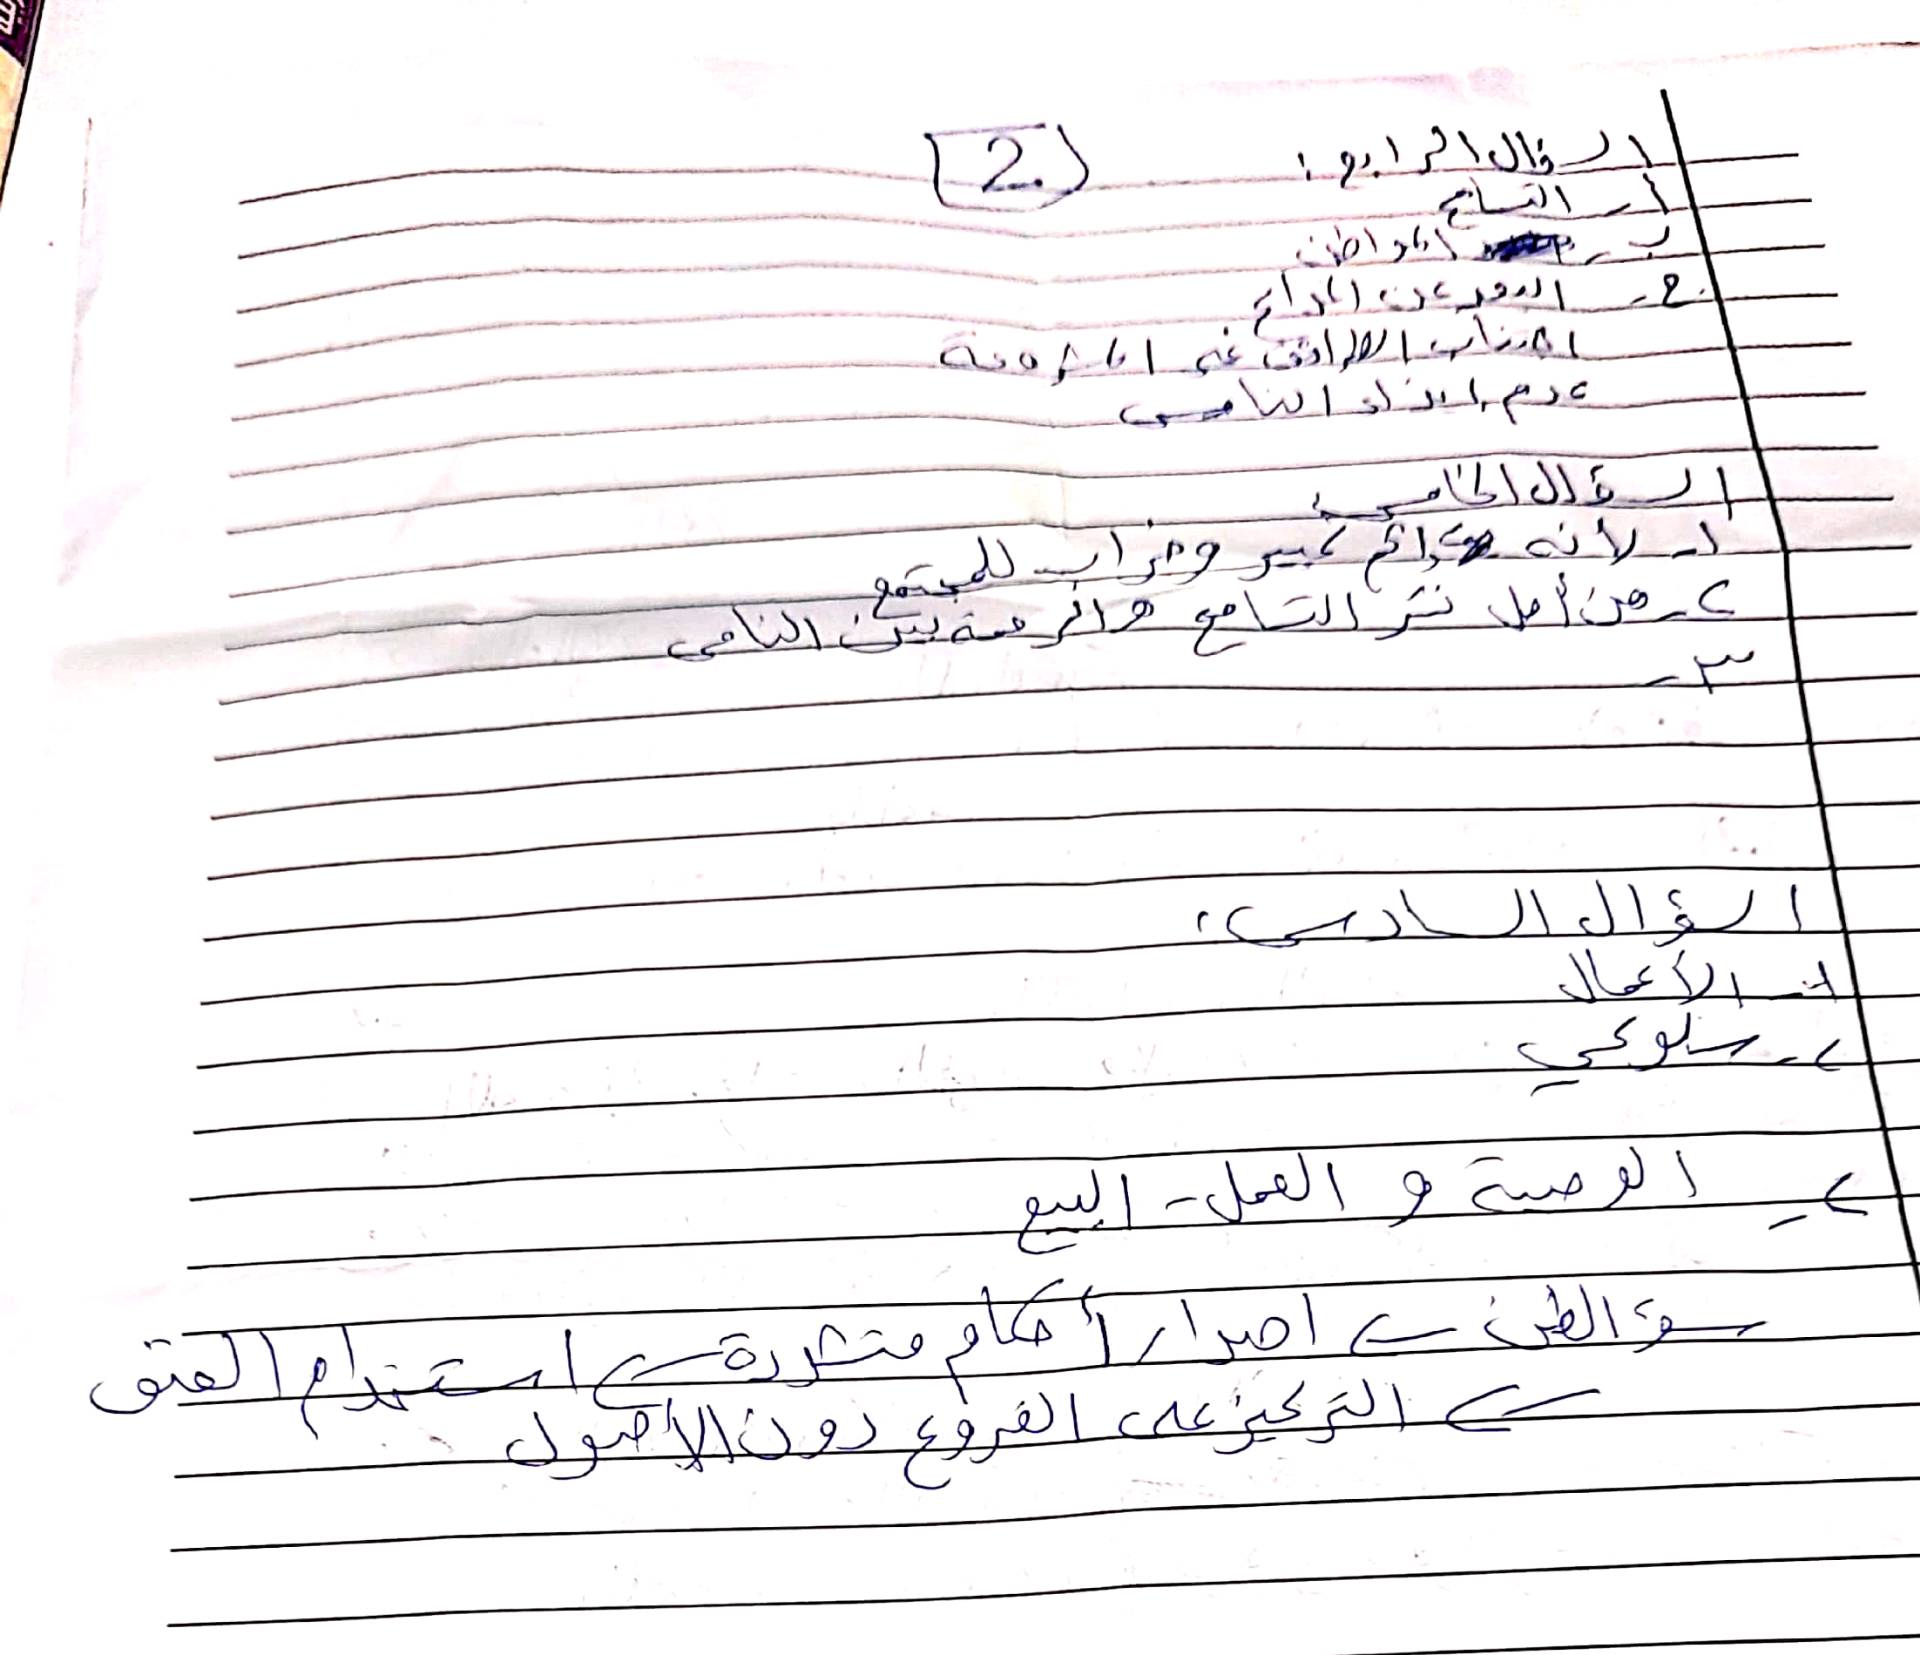 2
السؤال الرابع:
أ- التسامح
ب- المواطن
ج- البعد عن الحرام
اجتناب الطرائق غير المشروعة
عدم إيذاء الناس
السؤال الخامس:
١- لأنه جرائم كبير وخراب للمجتمع
٢- من أجل نشر التسامح والرحمة بين الناس
٣-
السؤال السادس:
١- الأعمال
٢- سلوكي
٢- الوصية و العمل - البيع
سوء الظن ← اصدار أحكام متشددة ← استخدام العنف
← التركيز على الفروع دون الأصول